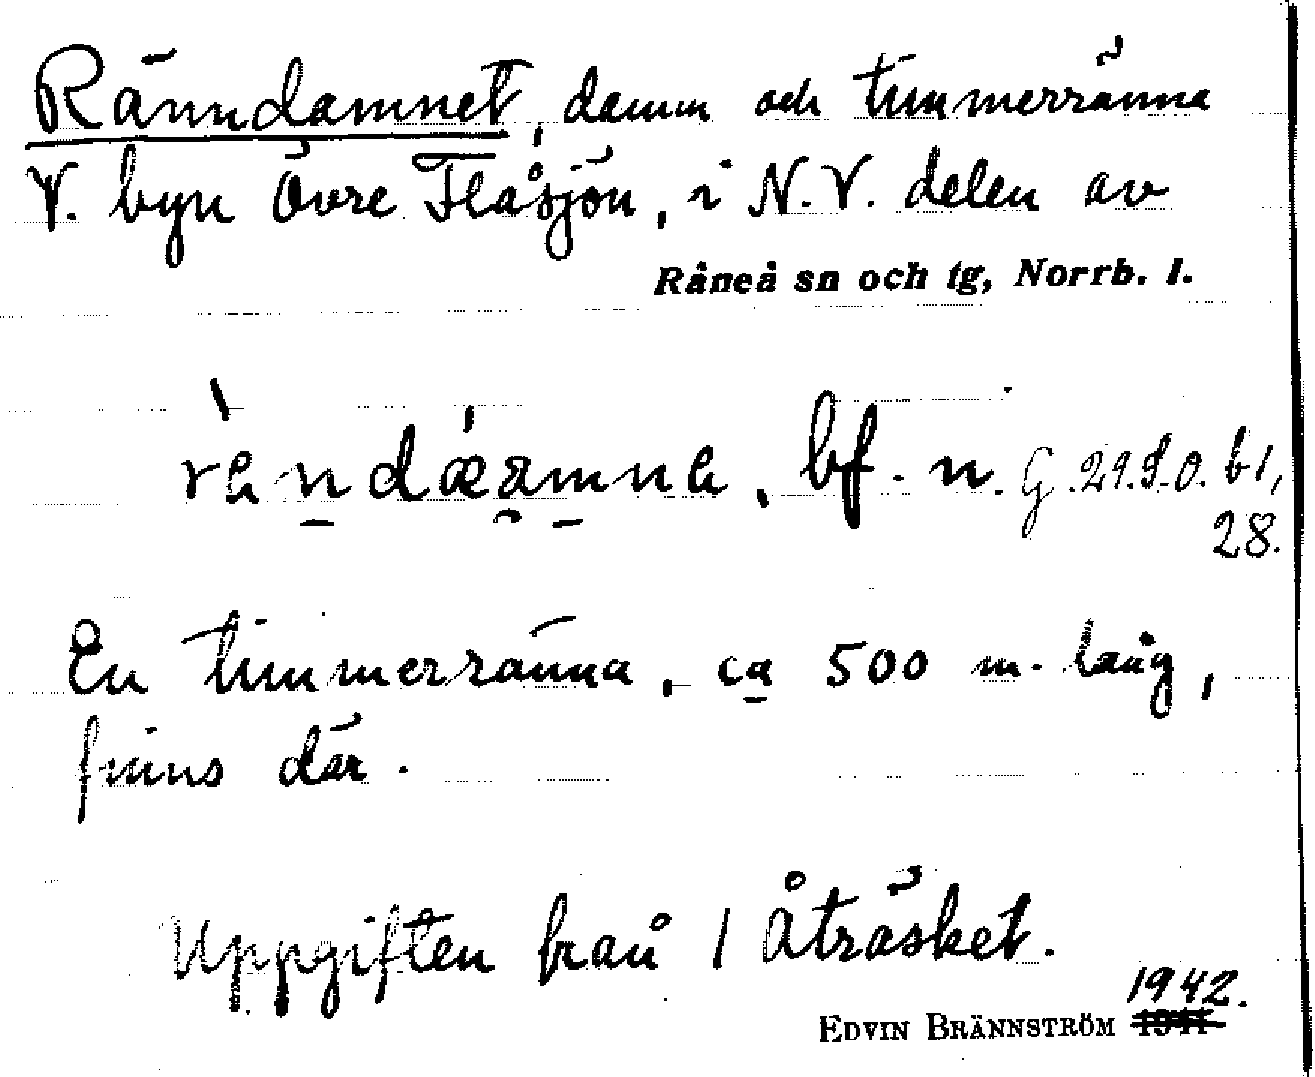 Ränndamnet, damm och timmerränna
V. byn Övre Flåsjön, i N.V. delen av
Råneå sn och tg, Norrb. l.
rändæạmna, bf. n. G. 29.S.O. b 1,
28.
En timmerränna, ca 500 m. lång,
finns där.
Uppgiften från 1 Åträsket.
1942.
EDVIN BRÄNNSTRÖM 1941